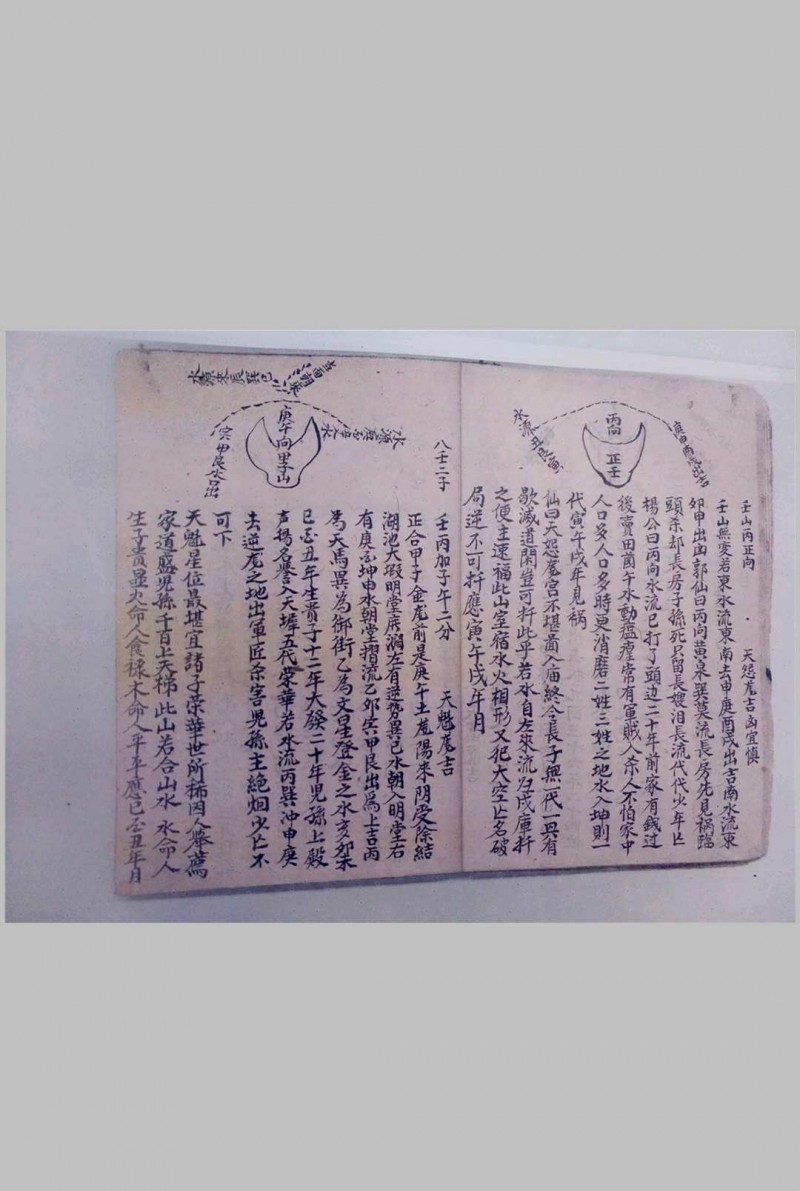 丙向
正壬
壬山丙正向
天怨龙吉凶宜慎
壬山無變若東水流東南去申庚酉戌出吉南水流東
卯申出凶郭仙曰丙向黄泉巽莫流長房先見禍臨
頭杀却長房子孫死只留長嫂泪長流代代少年亡
楊公曰丙向水流已打了頭边二十年前家有銭过
後賣田茵午水動瘟瘟常有軍賊人杀人不怕家中
人口多人口多時更消磨二姓三姓之地水入坤則一
代寅午戌年見禍
仙曰天怨龙宫不堪啚入庙終令長子無一代一具有
歇滅道閑豈可扦此乎若水自左來流归戌庫扦
之便主運福此山室宿水火相形又犯大空亡名破
局逆不可扦應寅午戌年月
庚午向
子山
八壬二子
壬丙加子午二分
天魁龙吉
正合甲子金龙前是庚午土龙陽来阴受除結
湖池大塅明堂広濶左有逆砦巽已水朝入明堂右
有庚酉坤申水朝堂摺流乙卯癸甲艮出為上吉丙
為天馬巽為御街乙為文星登金之水亥卯未
巳酉丑年生貴子十二年大發二十年児孫上殿
声揚名譽入天墀五代荣華若水流丙巽冲申庚
去逆龙之地出軍匠杀害児孫主絶烟少亡不
可下
天魁星位最堪宜諸子荣華世所稀因人舉薦
家道盛児孫千百上天梯此山若合山水水命人
生子貴显火命人食禄木命人平平應巳酉丑年月